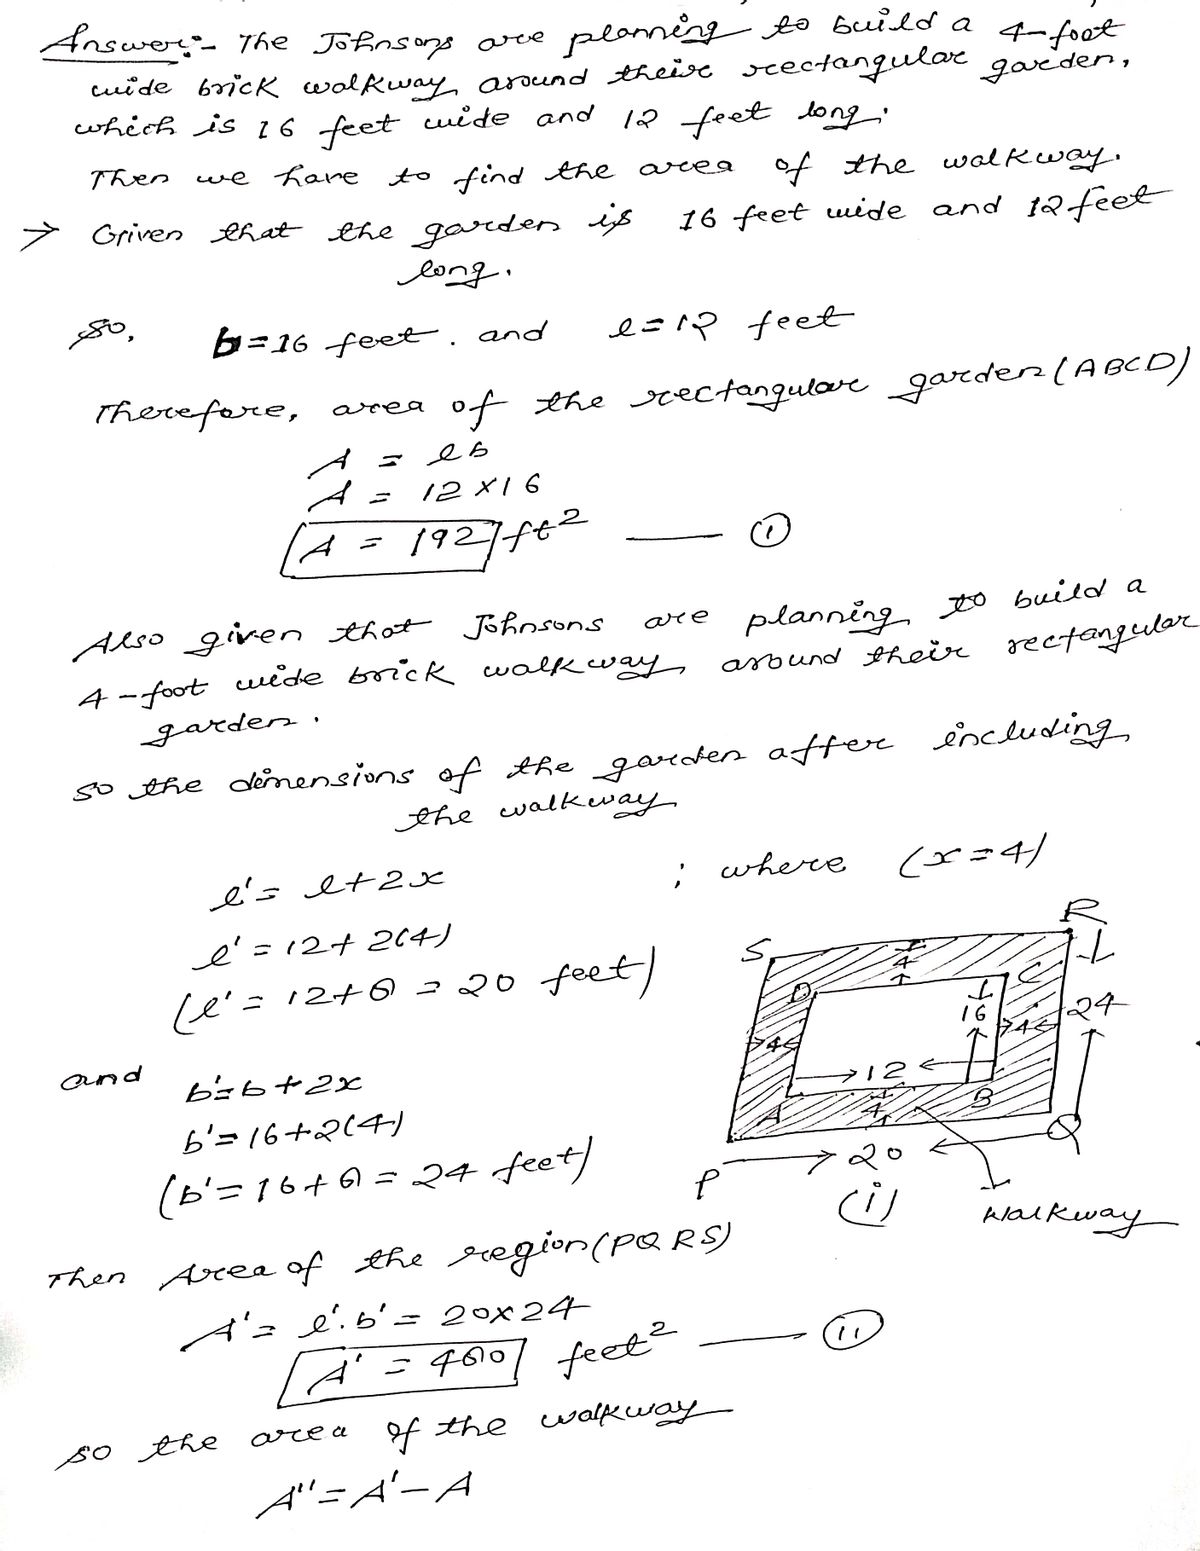 Answer:- The Johnsons are planning to build a 4-foot
wide brick walkway around their rectangular garden,
which is 16 feet wide and 12 feet long.
Then we have to find the area of the walkway.
→ Given that the garden is 16 feet wide and 12 feet
long.
So, b=16 feet. and l=12 feet
Therefore, area of the rectangular garden (ABCD)
A = lb
A = 12×16
A = 192 ft² — ①
Also given that Johnsons are planning to build a
4-foot wide brick walkway around their rectangular
garden.
so the dimensions of the garden after including
the walkway
l' = l+2x ; where (x=4)
l' = 12+2(4)
(l' = 12+8 = 20 feet)
and b'=b+2x
b'=16+2(4)
(b'=16+8=24 feet)
S R
D C
4
16
24
4 4
12
A B
4
P Q
20
(i) Walkway
Then Area of the region (PQRS)
A'= l'.b' = 20×24
A' = 480 feet² — ⑪
so the area of the walkway
A''=A'-A